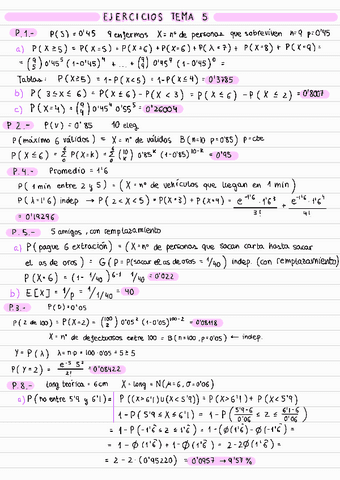 EJERCICIOS TEMA 5
P.1.- P(S) = 0'45 9 enfermos X = nº de personas que sobreviven n=9 p=0'45
a) P(X≥5) = P(X=5) + P(X=6) + P(X=6) + P(X=7) + P(X=8) + P(X=9) =
= (9 5) 0'45⁵ (1-0'45)⁴ + ... + (9 9) 0'45⁹ (1-0'45)⁰ =
Tablas: P(X≥5) = 1-P(X<5) = 1-P(X≤4) = 0'3785
b) P(3≤X≤6) = P(X≤6) - P(X<3) = P(X≤6) - P(X≤2) = 0'8007
c) P(X=4) = (9 4) 0'45⁴ 0'55⁵ = 0'26004
P.2.- P(V) = 0'85 10 eleg.
P(máximo 6 válidos) = X = nº de válidos B(n=10 p=0'85) p=cte
P(X≤6) = Σ P(X=k) = Σ (10 k) 0'85ᵏ (1-0'85)¹⁰⁻ᵏ = 0'95
P.4.- Promedio = 1'6
P(1 min entre 2 y 5) = (X = nº de vehículos que llegan en 1 min)
P(λ=1'6) indep → P(2<X<5) = P(X=3) + P(X=4) = e⁻¹'⁶·1'6³/3! + e⁻¹'⁶·1'6⁴/4! =
= 0'19296
P.5.- 5 amigos, con remplazamiento
a) P(pague 6 extracción) = (X = nº de personas que sacan carta hasta sacar
el as de oros) = G(p = P(sacar el as de oros = 1/40) indep. (con remplazamiento)
P(X=6) = (1-1/40)⁶⁻¹ 1/40 = 0'022
b) E[X] = 1/p = 1/1/40 = 40
P.3.- P(D) = 0'05
P(2 de 100) = P(X=2) = (100 2) 0'05² (1-0'05)¹⁰⁰⁻² = 0'08118
X = nº de defectuosos entre 100 = B(n=100, p=0'05) ← indep.
Y = P(λ) λ = n·p = 100·0'05 = 5 ≥ 5
P(Y=2) = e⁻⁵·5²/2! = 0'08422
P.8.- long teórica = 6cm X = long = N(μ=6, σ=0'06)
a) P(no entre 5'9 y 6'1) = P((X>6'1) ∪ (X<5'9)) = P(X>6'1) + P(X<5'9)
1-P(5'9≤X≤6'1) = 1-P(5'9-6/0'06 ≤ Z ≤ 6'1-6/0'06) =
= 1-P(-1'6̂ ≤ Z ≤ 1'6̂) = 1-(Φ(1'6̂) - Φ(-1'6̂) =
= 1-Φ(1'6̂) + 1-Φ(1'6̂) = 2-2Φ(1'6̂) =
= 2-2·(0'95220) = 0'0957 → 9'57%